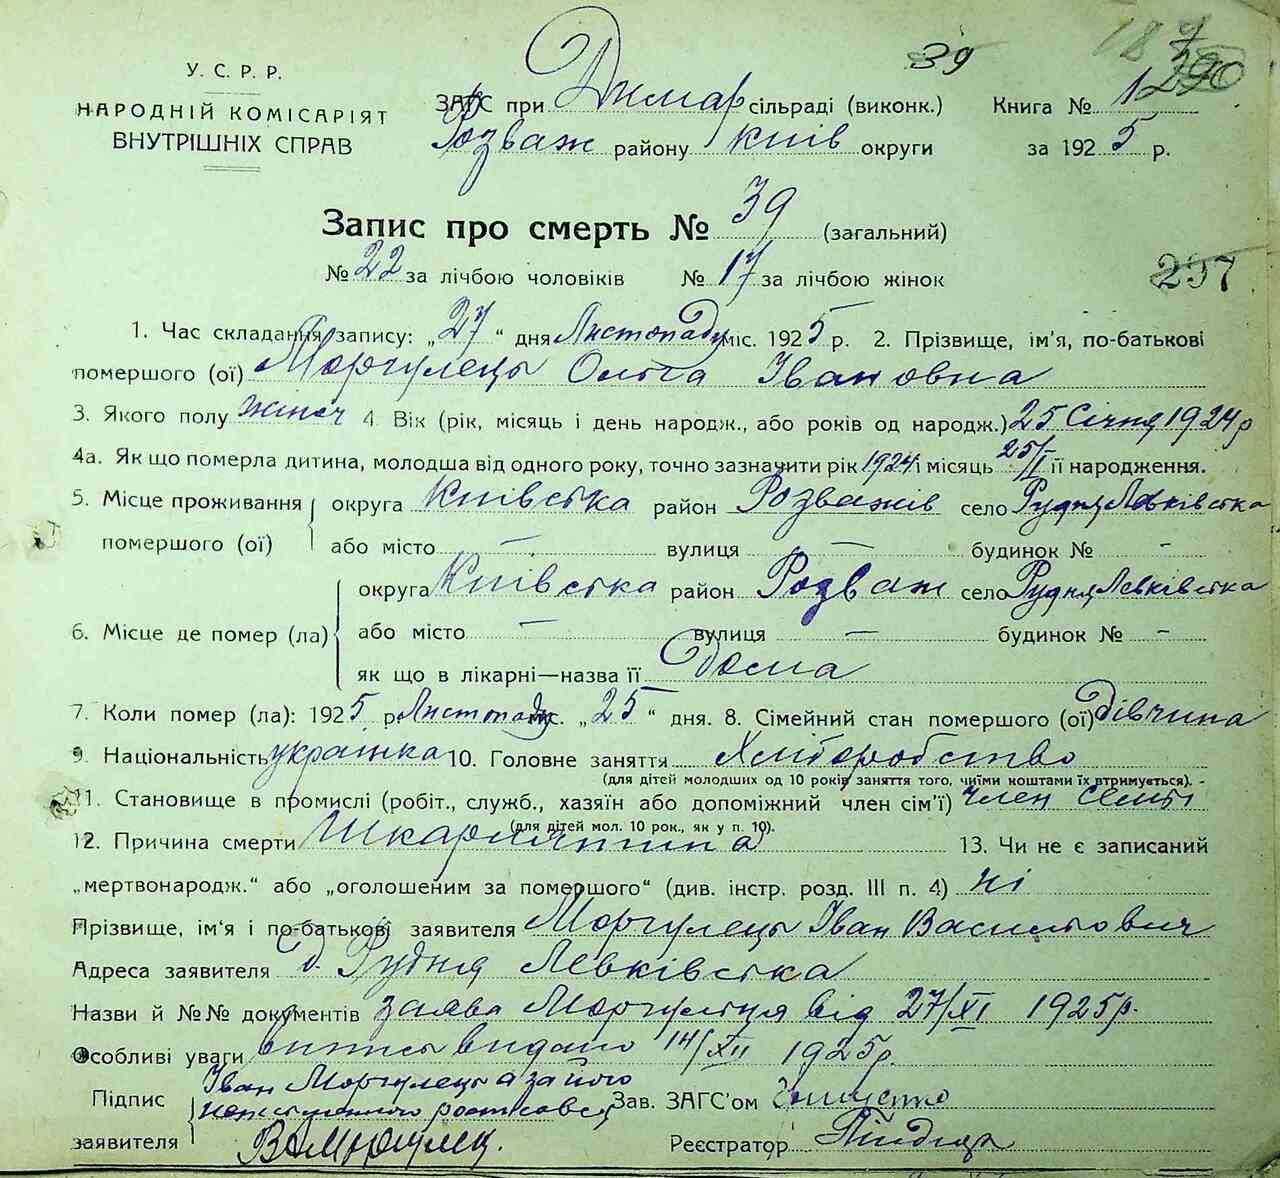 39
У. С. Р. Р.
НАРОДНІЙ КОМІСАРІЯТ
ВНУТРІШНІХ СПРАВ
ЗАГС при Димар сільраді (виконк.) Книга № 1
Розваж району Київ округи за 1925 р.
Запис про смерть № 39 (загальний)
№ 22 за лічбою чоловіків № 17 за лічбою жінок
297
1. Час складання запису: „27“ дня Листопаду міс. 1925 р. 2. Прізвище, ім'я, по-батькові
помершого (ої) Моргулець Ольга Івановна
3. Якого полу жіноч 4. Вік (рік, місяць і день народж., або років од народж.) 25 Січня 1924 р
4а. Як що померла дитина, молодша від одного року, точно зазначити рік 1924 і місяць 25/I її народження.
5. Місце проживання помершого (ої) округа Київська район Розважів село Рудня Левківська
або місто — вулиця — будинок № -
6. Місце де помер (ла) округа Київська район Розваж село Рудня Левківська
або місто — вулиця — будинок № -
як що в лікарні—назва її Дома
7. Коли помер (ла): 1925 р. Листопаду міс. „25“ дня. 8. Сімейний стан помершого (ої) дівчина
9. Національність українка 10. Головне заняття Хліборобство
(для дітей молодших од 10 років заняття того, чиїми коштами їх втримується).
11. Становище в промислі (робіт., служб., хазяїн або допоміжний член сім'ї) член семьї
(для дітей мол. 10 рок., як у п. 10).
12. Причина смерти Шкарлятина 13. Чи не є записаний
„мертвонародж.“ або „оголошеним за помершого“ (див. інстр. розд. III п. 4) ні
Прізвище, ім'я і по-батькові заявителя Моргулець Іван Васильович
Адреса заявителя д. Рудня Левківська
Назви й №№ документів заява Моргульця від 27/XI 1925р.
Особливі уваги випись видано 14/XII 1925р.
Підпис заявителя Іван Моргулець а за його
неписьменного росписався Зав. ЗАГС'ом
Реєстратор